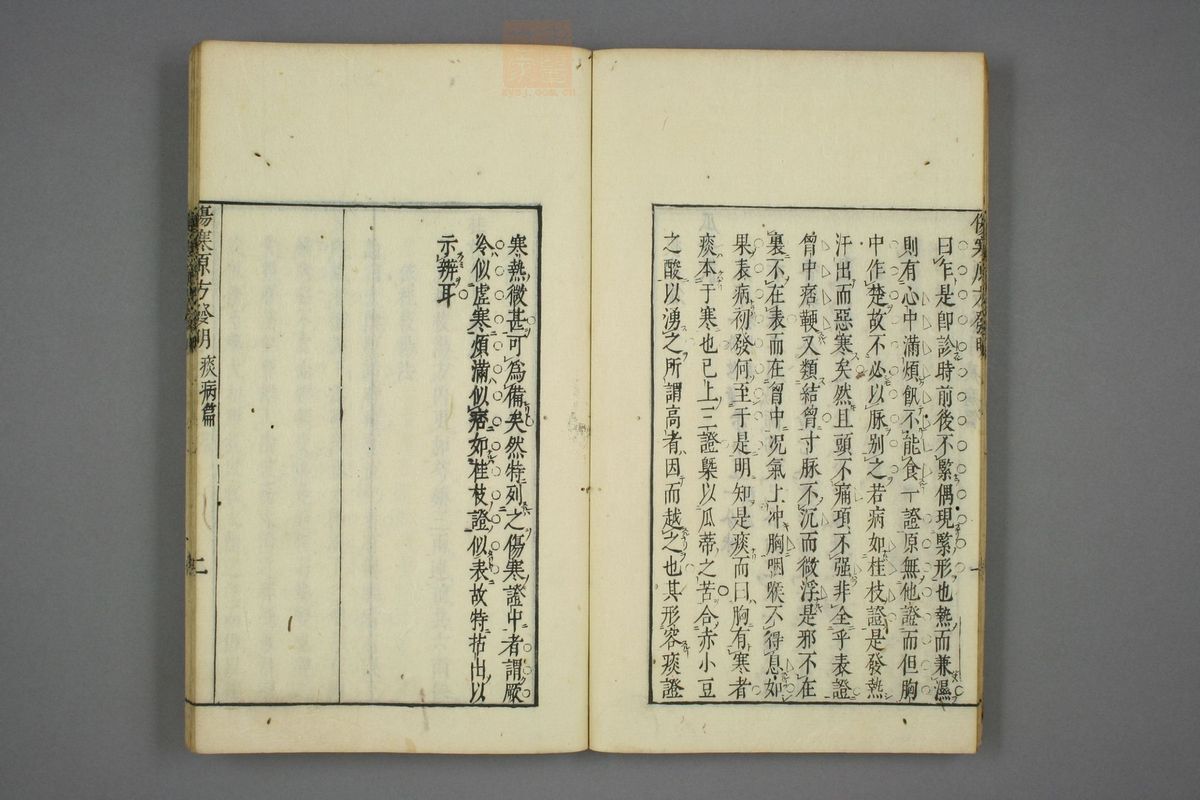 傷寒原方發明
曰乍是卽診時前後不緊偶現緊形也熱而兼濕
則有心中滿煩飲不能食一證原無他證而但胸
中作楚故不必以脉别之若病如桂枝證是發熱
汗出而惡寒矣然且頭不痛項不强非全乎表證
曾中痞鞕又類結曾寸脉不沉而微浮是邪不在
裏不在表而在曾中况氣上冲胸咽喉不得息如
果表病初發何至于是明知是痰而曰胸有寒者
痰本于寒也已上三證槩以瓜蒂之苦合赤小豆
之酸以湧之所謂高者因而越之也其形容痰證
一
寒熱微甚可爲備矣然特列之傷寒證中者謂厥
冷似虛寒煩滿似痞如桂枝證似表故特拈出以
示辨耳
傷寒原方發明 痰病篇
二